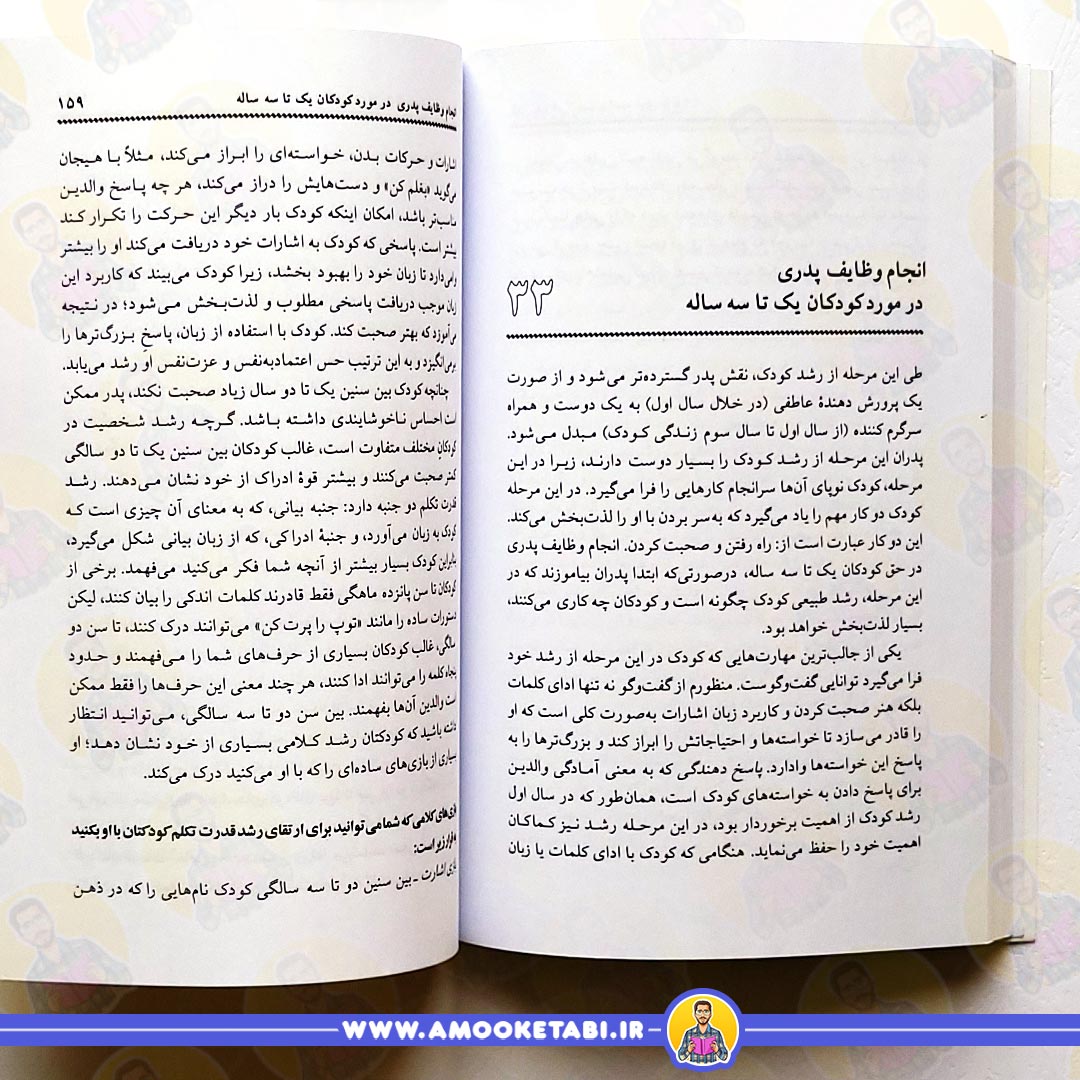 انجام وظایف پدری
در مورد کودکان یک تا سه ساله
۳۳
طی این مرحله از رشد کودک، نقش پدر گسترده‌تر می‌شود و از صورت
یک پرورش دهندهٔ عاطفی (در خلال سال اول) به یک دوست و همراه
سرگرم کننده (از سال اول تا سال سوم زندگی کودک) مبدل می‌شود.
پدران این مرحله از رشد کودک را بسیار دوست دارند، زیرا در این
مرحله، کودک نوپای آن‌ها سرانجام کارهایی را فرا می‌گیرد. در این مرحله
کودک دو کار مهم را یاد می‌گیرد که به‌سر بردن با او را لذت‌بخش می‌کند.
این دو کار عبارت است از: راه رفتن و صحبت کردن. انجام وظایف پدری
در حق کودکان یک تا سه ساله، درصورتی‌که ابتدا پدران بیاموزند که در
این مرحله، رشد طبیعی کودک چگونه است و کودکان چه کاری می‌کنند،
بسیار لذت‌بخش خواهد بود.
یکی از جالب‌ترین مهارت‌هایی که کودک در این مرحله از رشد خود
فرا می‌گیرد توانایی گفت‌وگوست. منظورم از گفت‌وگو نه تنها ادای کلمات
بلکه هنر صحبت کردن و کاربرد زبان اشارات به‌صورت کلی است که او
را قادر می‌سازد تا خواسته‌ها و احتیاجاتش را ابراز کند و بزرگ‌ترها را به
پاسخ این خواسته‌ها وادارد. پاسخ دهندگی که به معنی آمادگی والدین
برای پاسخ دادن به خواسته‌های کودک است، همان‌طور که در سال اول
رشد کودک از اهمیت برخوردار بود، در این مرحله رشد نیز کماکان
اهمیت خود را حفظ می‌نماید. هنگامی که کودک با ادای کلمات یا زبان
انجام وظایف پدری در مورد کودکان یک تا سه ساله ۱۵۹
اشارات و حرکات بدن، خواسته‌ای را ابراز می‌کند، مثلاً با هیجان
می‌گوید «بغلم کن» و دست‌هایش را دراز می‌کند، هر چه پاسخ والدین
مناسب‌تر باشد، امکان اینکه کودک بار دیگر این حرکت را تکرار کند
بیشتر است. پاسخی که کودک به اشارات خود دریافت می‌کند او را بیشتر
وامی‌دارد تا زبان خود را بهبود بخشد، زیرا کودک می‌بیند که کاربرد این
زبان موجب دریافت پاسخی مطلوب و لذت‌بخش می‌شود؛ در نتیجه
می‌آموزد که بهتر صحبت کند. کودک با استفاده از زبان، پاسخِ بزرگ‌ترها را
برمی‌انگیزد و به این ترتیب حس اعتمادبه‌نفس و عزت‌نفس او رشد می‌یابد.
چنانچه کودک بین سنین یک تا دو سال زیاد صحبت نکند، پدر ممکن
است احساس ناخوشایندی داشته باشد. گرچه رشد شخصیت در
کودکان مختلف متفاوت است، غالب کودکان بین سنین یک تا دو سالگی
کمتر صحبت می‌کنند و بیشتر قوهٔ ادراک از خود نشان می‌دهند. رشد
قدرت تکلم دو جنبه دارد: جنبه بیانی، که به معنای آن چیزی است که
کودک به زبان می‌آورد، و جنبهٔ ادراکی، که از زبان بیانی شکل می‌گیرد،
بنابراین کودک بسیار بیشتر از آنچه شما فکر می‌کنید می‌فهمد. برخی از
کودکان تا سن پانزده ماهگی فقط قادرند کلمات اندکی را بیان کنند، لیکن
دستورات ساده را مانند «توپ را پرت کن» می‌توانند درک کنند، تا سن دو
سالگی، غالب کودکان بسیاری از حرف‌های شما را می‌فهمند و حدود
پنجاه کلمه را می‌توانند ادا کنند، هر چند معنی این حرف‌ها را فقط ممکن
است والدین آن‌ها بفهمند. بین سن دو تا سه سالگی، می‌توانید انتظار
داشته باشید که کودکتان رشد کلامی بسیاری از خود نشان دهد؛ او
بسیاری از بازی‌های ساده‌ای را که با او می‌کنید درک می‌کند.
بازی‌های کلامی که شما می‌توانید برای ارتقای رشد قدرت تکلم کودکتان با او بکنید
به قرار زیر است:
بازی اشارت ـ بین سنین دو تا سه سالگی کودک نام‌هایی را که در ذهن
WWW.AMOOKETABI.IR